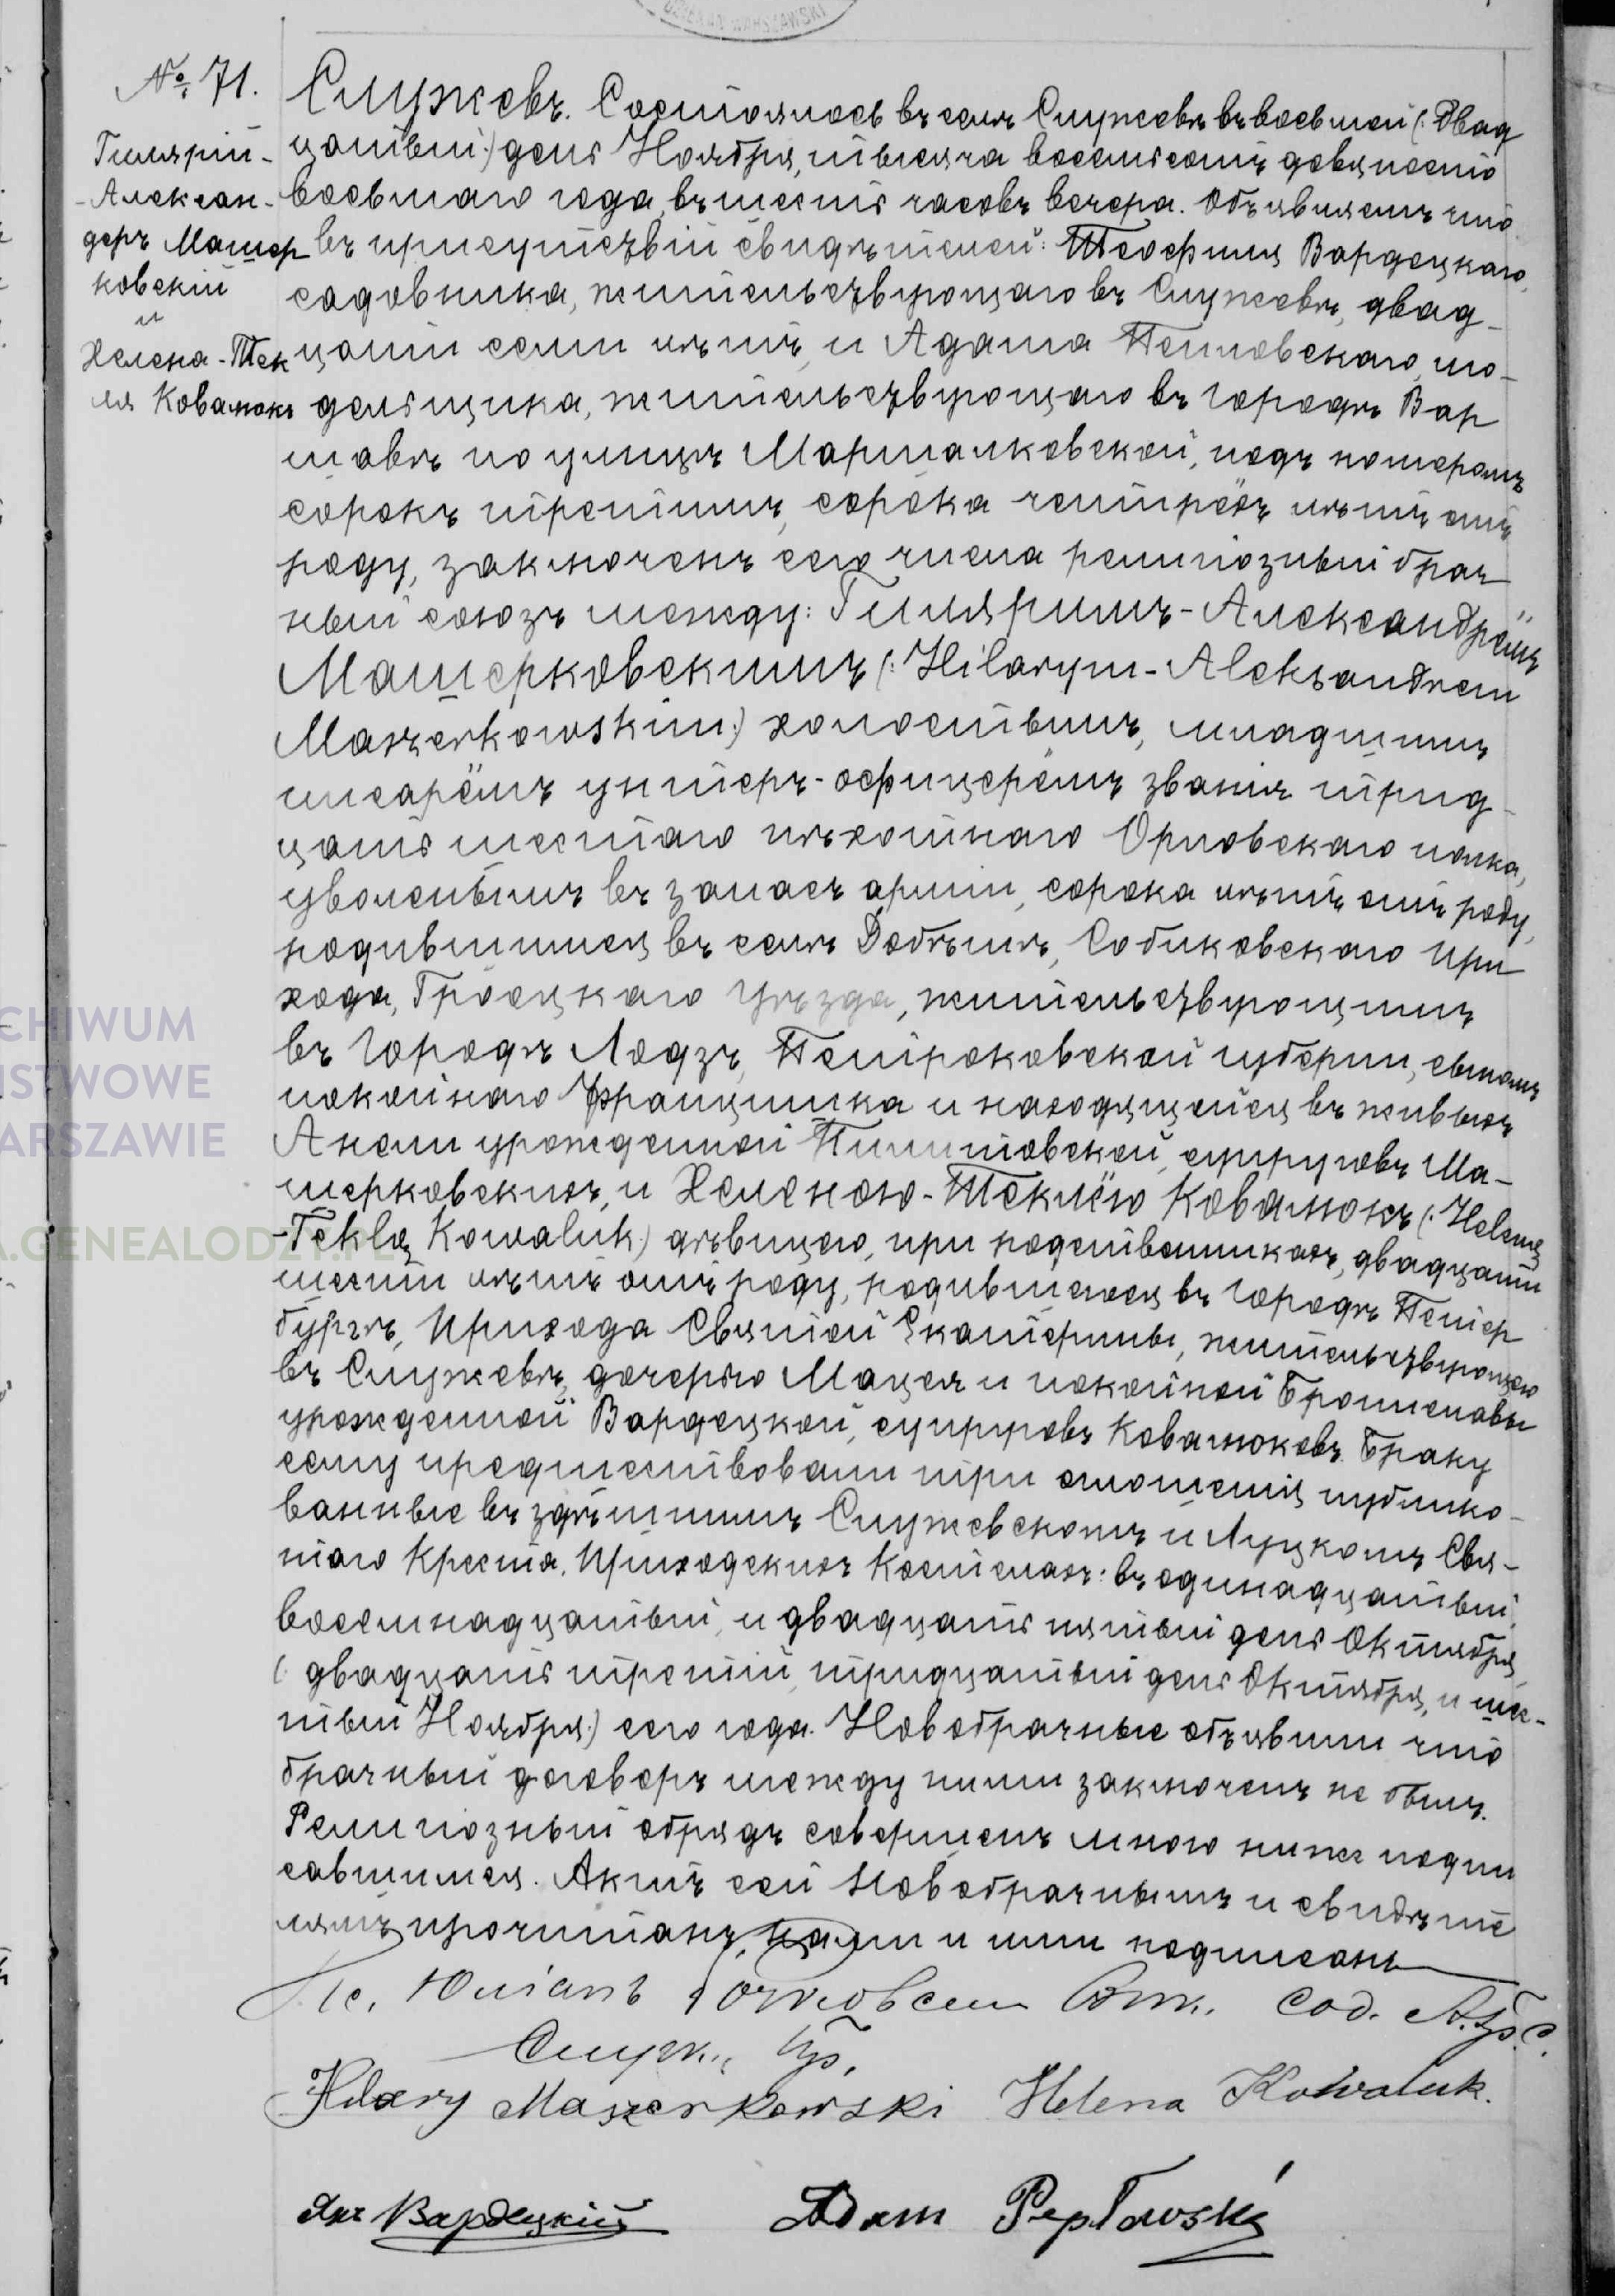 DZIEKAN WARSZAWSKI
№ 71.
Гилярій-
-Алексан-
деръ Машер
ковскій
и
Хелена-Тек
ля Ковалюкъ
Служевъ. Состоялось въ селѣ Служевѣ въ восьмой (:двад
цатый:) день Ноября, тысяча восемьсотъ девяносто
восьмаго года, въ шесть часовъ вечера. Объявляемъ что
въ присутствіи свидѣтелей: Теофиля Вардецкаго,
садовника, жительствующаго въ Служевѣ, двад-
цати семи лѣтъ, и Адама Пепловскаго, мо-
дельщика, жительствующаго въ городѣ Вар
шавѣ по улицѣ Маршалковской, подъ номеромъ
сорокъ третимъ, сорока четырёхъ лѣтъ отъ
роду, заключенъ сего числа религіозный брач
ный союзъ между: Гиляримъ-Александрёмъ
Машерковскимъ (:Hilarym-Aleksandrem
Maszerkowskim:) холостымъ, младшимъ
писарёмъ унтеръ-офицерёмъ званія трид-
цать шестаго пѣхотнаго Орловскаго полка,
уволенымъ въ запасъ арміи, сорока лѣтъ отъ роду,
родившимся въ селѣ Добѣшѣ, Собиковскаго при
хода, Гроецкаго Уѣзда, жительствующимъ
въ городѣ Лодзѣ, Петроковской губерніи, сыномъ
покойнаго Францишка и находящейся въ живыхъ
Анели урожденной Пилитовской, супруговъ Ма-
шерковскихъ, и Хеленою-Теклёю Ковалюкъ (:Heleną
-Teklą Kowaluk:) дѣвицею, при родственникахъ, двадцати
шести лѣтъ отъ роду, родившеюся въ городѣ Петер
бургѣ, Прихода Святой Екатерины, жительствующею
въ Служевѣ, дочерью Мацея и покойной Брониславы
урожденной Вардецкой, супруговъ Ковалюковъ. Браку
сему предшествовали три оглошенія публико-
ванные въ здѣшнимъ Служевскомъ и Луцкомъ Свя-
таго Креста. Приходскихъ Костелахъ: въ одинадцатый,
восемнадцатый, и двадцать пятый день Октября,
(: двадцать третій, тридцатый день Октября, и шес-
тый Ноября:) сего года. Новобрачные объявили что
брачный договоръ между ними заключенъ не былъ.
Религіозный обрядъ совершенъ мною ниже подпи
савшимся. Актъ сей Новобрачнымъ и свидѣте
лямъ прочитанъ, нами и ими подписанъ
Кс. Юліанъ Сод.
Служ.
Hilary Maszerkowski Helena Kowaluk.
Вардецкій Adam Pepłowski